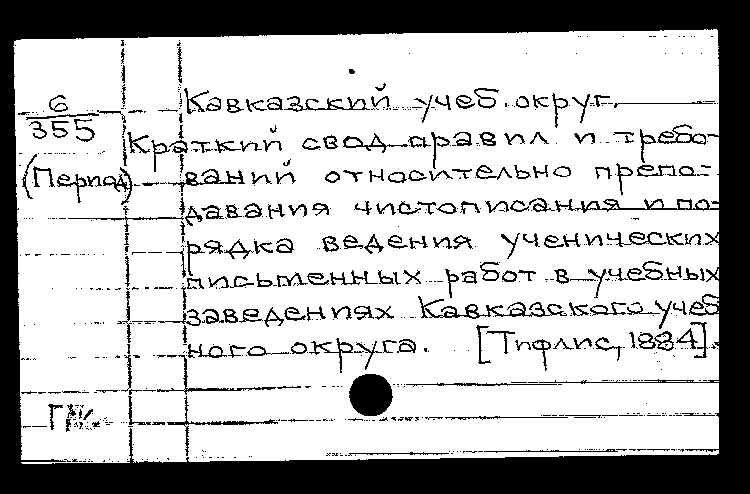 6
355
(Период)
Кавказский учеб. округ.
Краткий свод правил и требо-
ваний относительно препо-
давания чистописания и по-
рядка ведения ученических
письменных работ в учебных
заведениях Кавказского учеб
ного округа. [Тифлис, 1884].